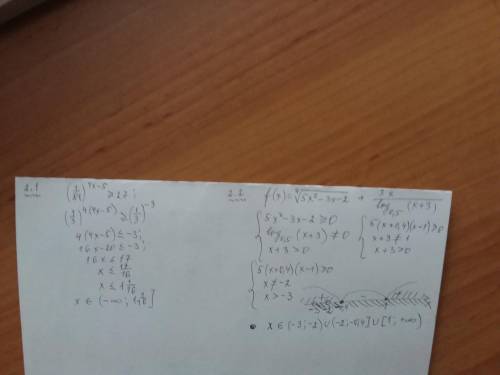 2.1
(1/81)^(4x-5) ≥ 27;
(1/3)^(4(4x-5)) ≥ (1/3)^(-3)
4(4x-5) ≤ -3;
16x-20 ≤ -3;
16x ≤ 17
x ≤ 17/16
x ≤ 1 1/16
x ∈ (-∞; 1 1/16]
2.2
f(x) = √(5x²-3x-2) + 3x/log_0,5 (x+3)
{ 5x²-3x-2 ≥ 0
log_0,5 (x+3) ≠ 0
x+3 > 0
{ 5(x+0,4)(x-1) ≥ 0
x+3 ≠ 1
x+3 > 0
{ 5(x+0,4)(x-1) ≥ 0
x ≠ -2
x > -3
-3 -2
x ∈ (-3; -2) ∪ (-2; -0,4] ∪ [1; +∞)